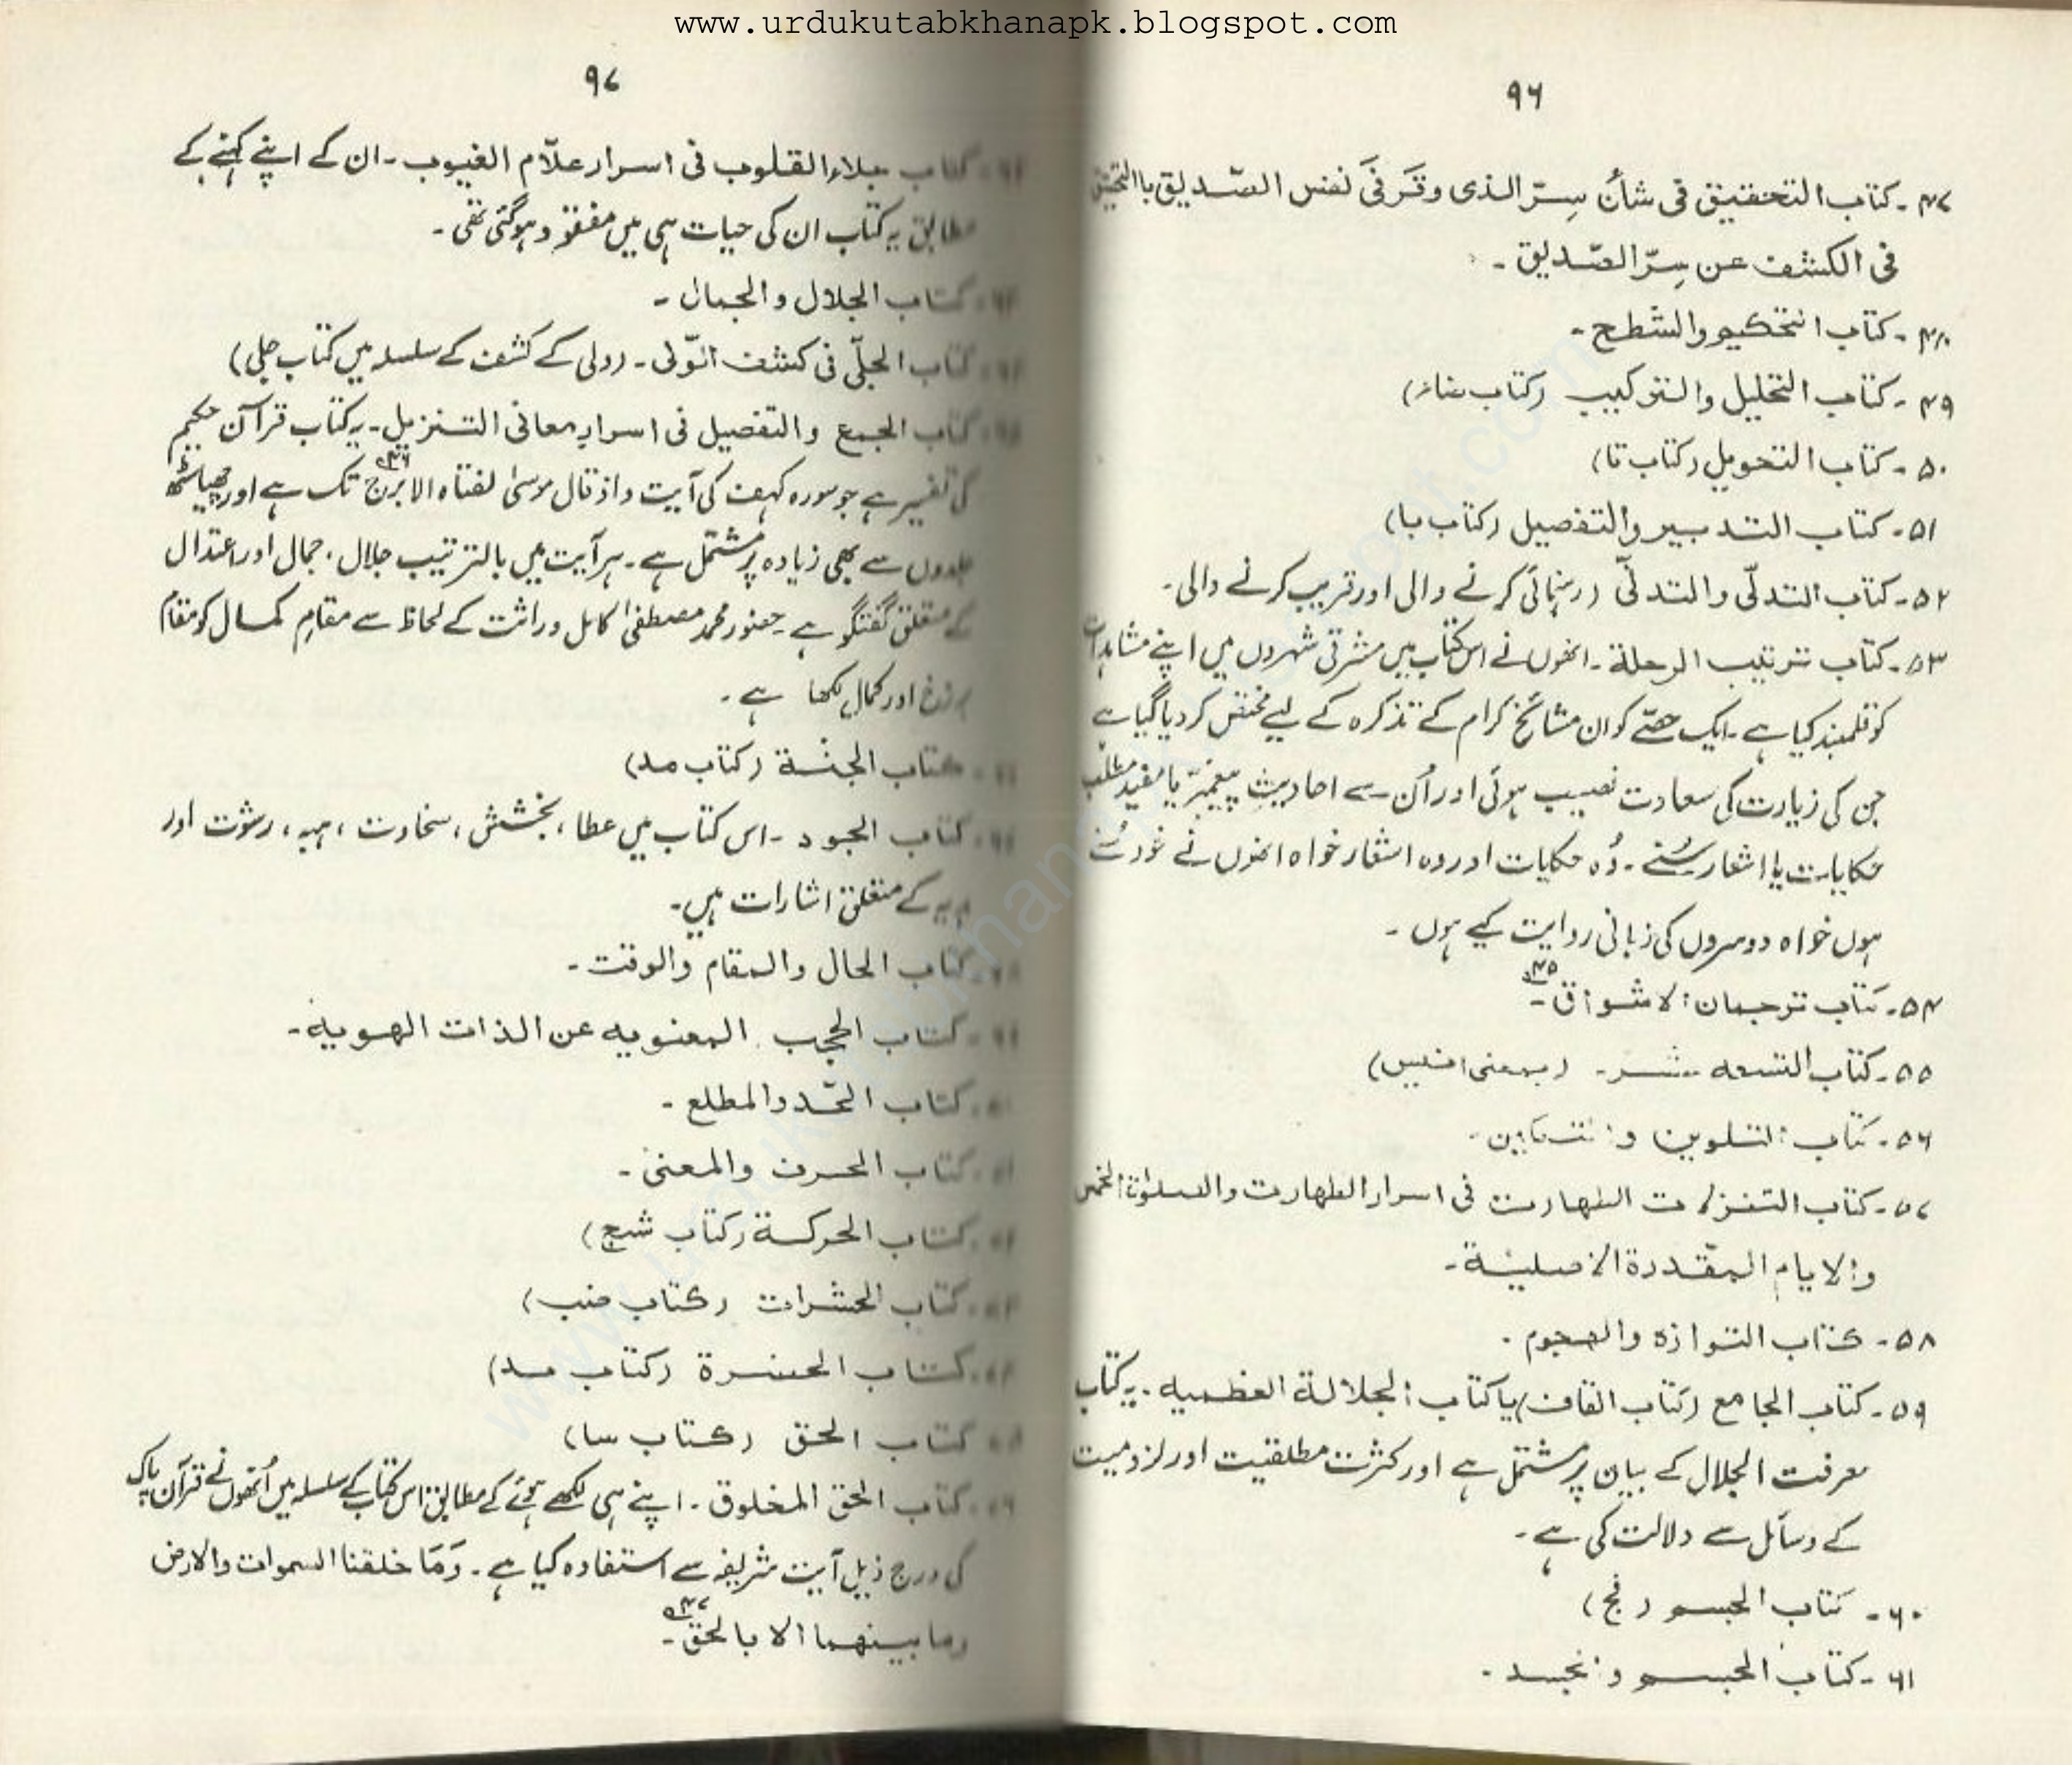 www.urdukutabkhanapk.blogspot.com
۹۶
۴۷۔ کتاب التحقیق فی شأن سِرّ الذی وقَرَ فیَ نفس الصّدیق با التحقیق
فی الکشف عن سِرّ الصّدیق ۔
۴۸۔ کتاب التحکیم والشطح ۔
۴۹۔ کتاب التحلیل والترکیب (کتاب
۵۰۔ کتاب التحویل (کتاب تا)
۵۱۔ کتاب التدبیر والتفصیل (کتاب با)
۵۲۔ کتاب التدلّی والتدنّی (رہنمائی کرنے والی اور قریب کرنے والی۔
۵۳۔ کتاب ترتیب الرحلة ۔ انھوں نے اس کتاب میں مشرقی شہروں میں اپنے مشاہدات
کو قلمبند کیا ہے ۔ ایک حصّے کو ان مشائخ کرام کے تذکرہ کے لیے مختص کر دیا گیا ہے
جن کی زیارت کی سعادت نصیب ہوئی اور اُن سے احادیثِ پیغمبرؐ یا مفید مطلب
حکایات یا اشعار سُنے ۔ وُہ حکایات اور وہ اشعار خواہ انھوں نے خود سُنے
ہوں خواہ دوسروں کی زبانی روایت کیے ہوں ۔
۵۴۔ کتاب ترجمان الاشواق ۔ ۴۵
۵۵۔ کتاب التسعه عشر ۔ (بمعنی انیس)
۵۶۔ کتاب التلوین و التمکین ۔
۵۷۔ کتاب التنزلات الطهارت فی اسرار الطهارت والصلوٰة الخمس
والایام المقدرة الاصلیّة ۔
۵۸۔ کتاب التوازه والهجوم ۔
۵۹۔ کتاب الجامع (کتاب القاف) یا کتاب الجلالة العظمیه ۔ یہ کتاب
معرفت الجلال کے بیان پر مشتمل ہے اور کثرت مطلقیت اور لزومیت
کے وسائل سے دلالت کی ہے ۔
۶۰۔ کتاب الجسم (فج)
۶۱۔ کتاب الجسم والجسد ۔
۹۷
کتاب جلاء القلوب فی اسرار علّام الغیوب ۔ ان کے اپنے کہنے کے
مطابق یہ کتاب ان کی حیات ہی میں مفقود ہو گئی تھی ۔
کتاب الجلال والجمال ۔
کتاب الجلّی فی کشف الوّلی ۔ (ولی کے کشف کے سلسلہ میں کتاب جلی)
کتاب الجمع والتفصیل فی اسرار معانی التنزیل ۔ یہ کتاب قرآن حکیم
کی تفسیر ہے جو سورہ کہف کی آیت واذ قال موسیٰ لفتاه لا ابرح ۴۶ تک ہے اور چھیاسٹھ
جلدوں سے بھی زیادہ پر مشتمل ہے ۔ ہر آیت میں بالترتیب جلال، جمال اور اعتدال
کے متعلق گفتگو ہے ۔ حضور محمد مصطفیٰ کامل وراثت کے لحاظ سے مقامِ کمال کو مقام
برزخ اور کمال لکھا ہے ۔
کتاب الجنّة (کتاب مد)
کتاب الجود ۔ اس کتاب میں عطا، بخشش، سخاوت، ہبہ، رشوت اور
ہدیہ کے متعلق اشارات ہیں ۔
کتاب الحال والمقام والوقت ۔
کتاب الحجب المعنویه عن الذات الهویه ۔
کتاب الحّد والمطلع ۔
کتاب الحرف والمعنیٰ ۔
کتاب الحرکة (کتاب شج)
کتاب الحشرات (کتاب
کتاب الحضرة (کتاب
کتاب الحق (کتاب سا)
کتاب الحق المخلوق ۔ اپنے ہی لکھے ہوئے کے مطابق اس کتاب کے سلسلہ میں اُنھوں نے قرآن پاک
کی درج ذیل آیت شریفہ سے استفادہ کیا ہے ۔ وَمَا خلقنا السموات والارض
وما بینهما الا بالحق ۔ ۴۷